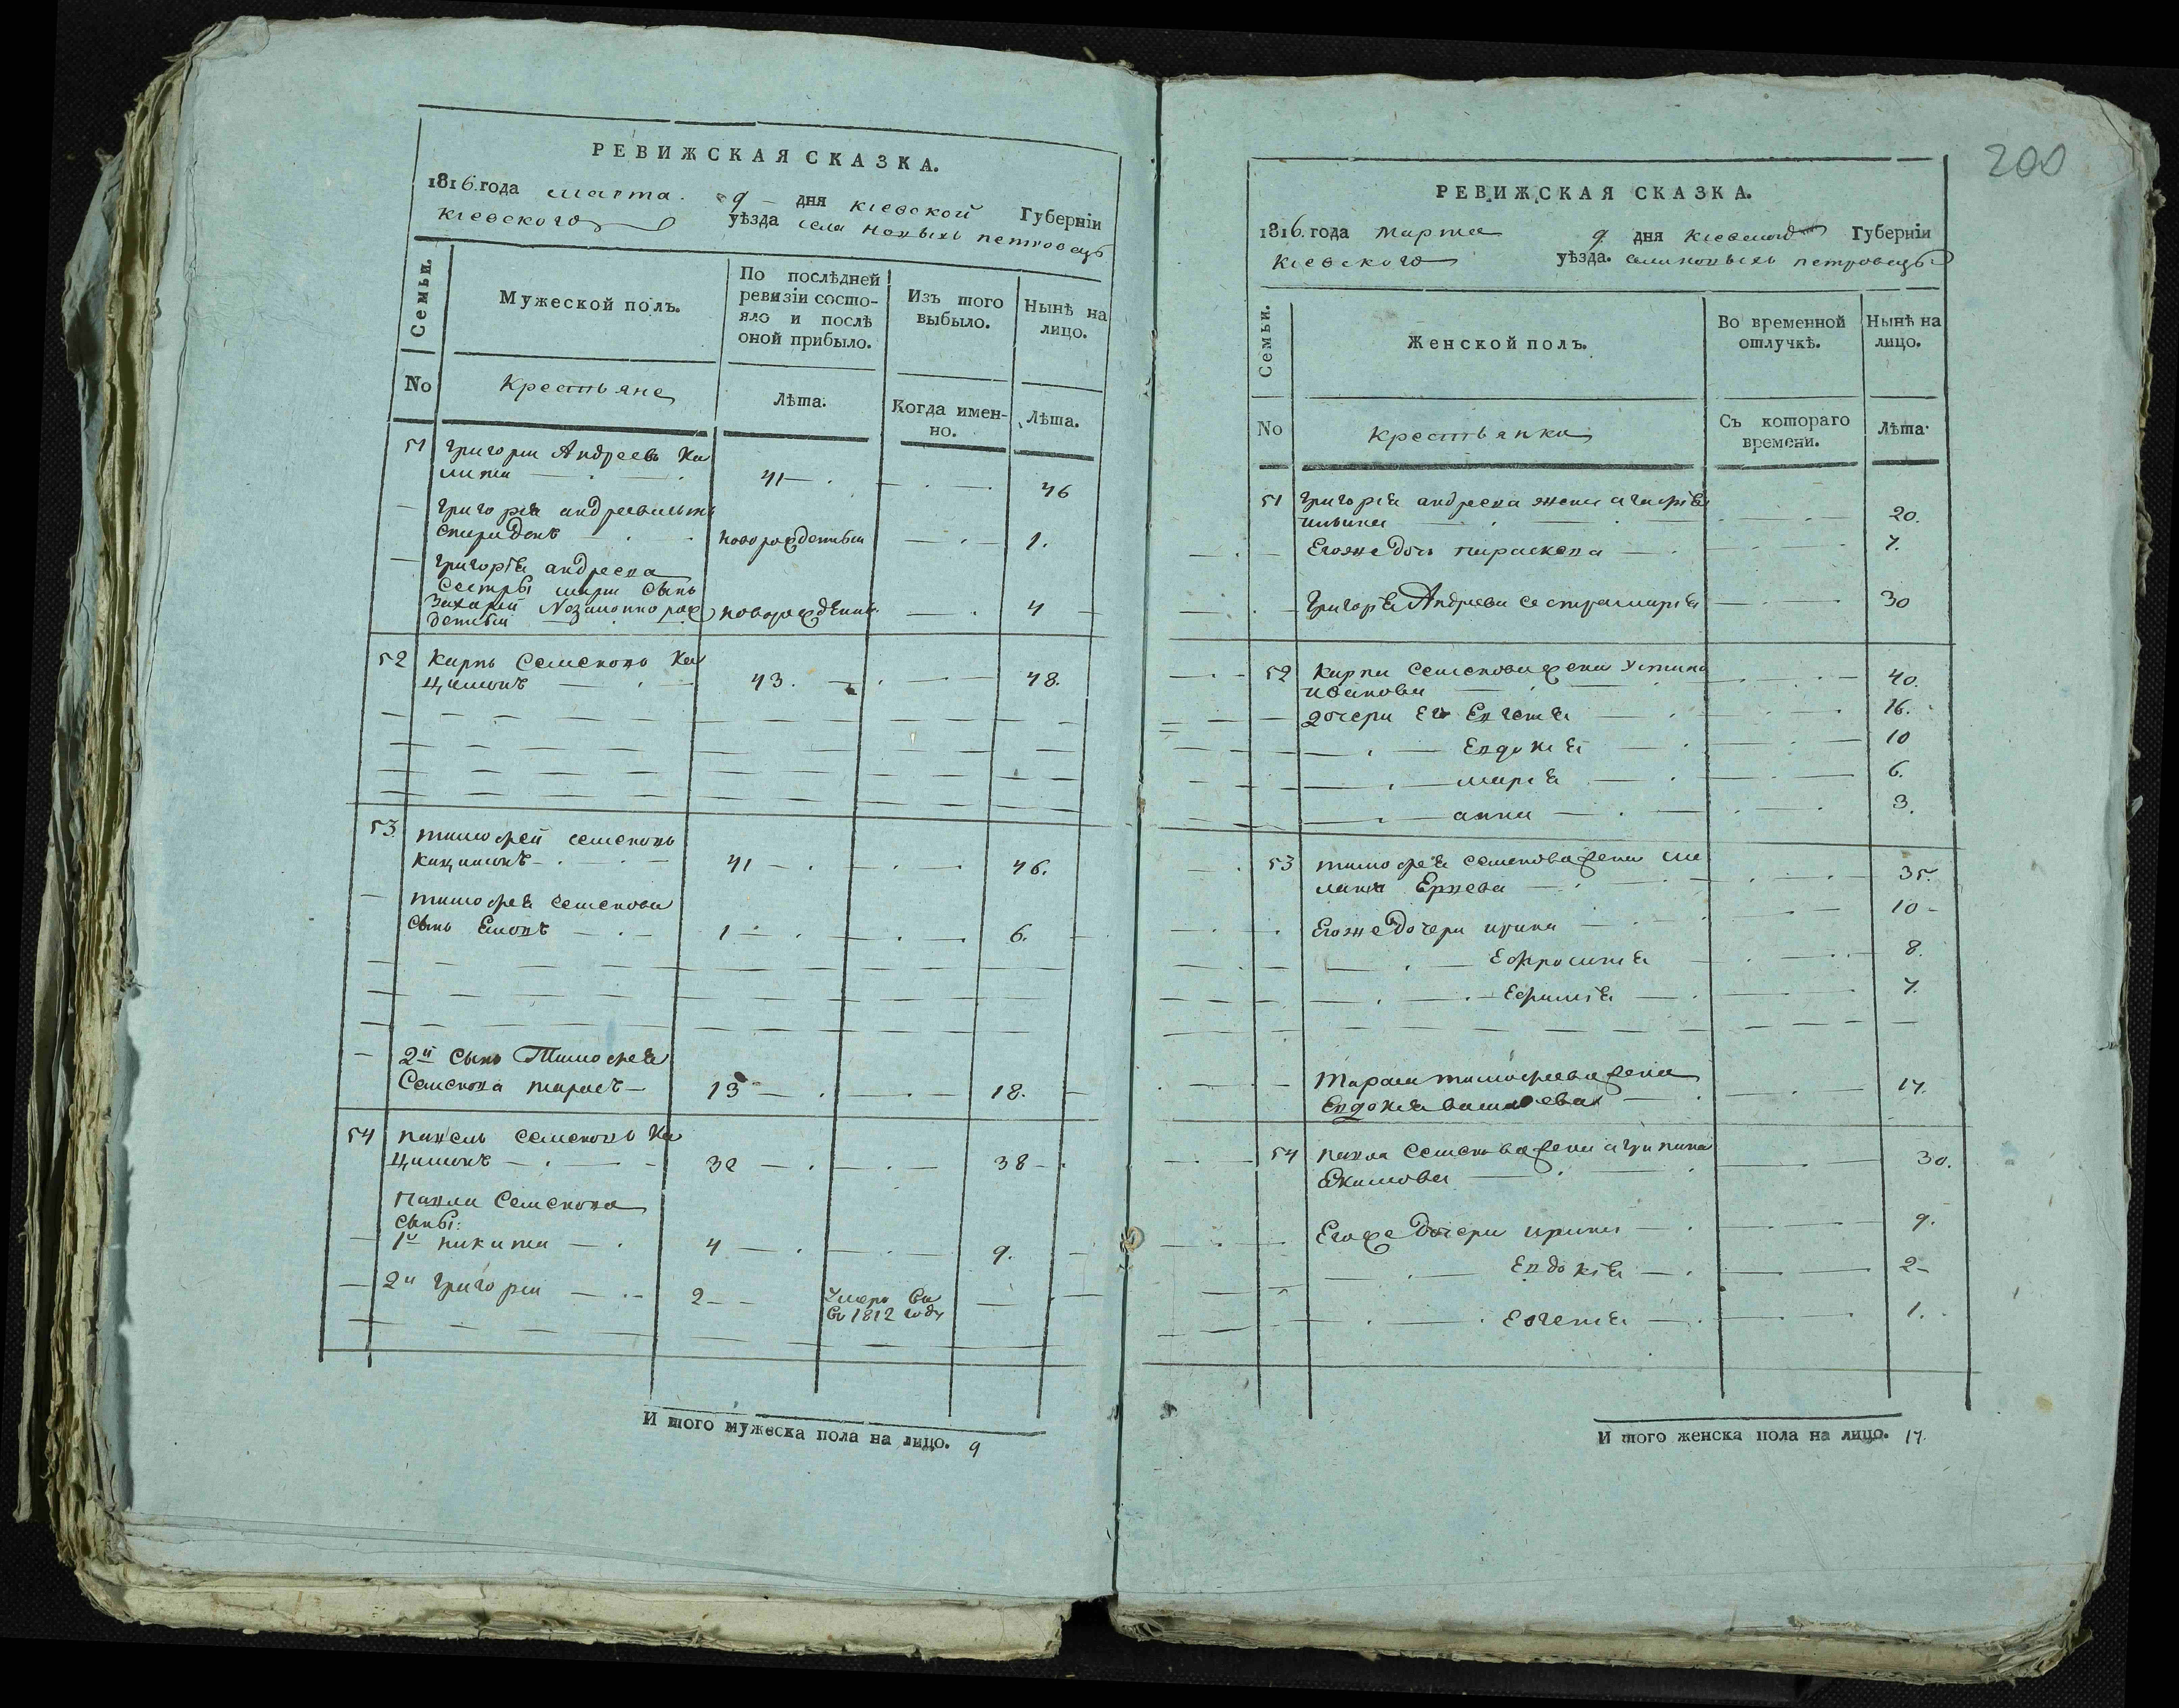 РЕВИЖСКАЯ СКАЗКА.
1816. года марта. 9 дня кіевской Губерніи
кіевского уѣзда села новыхъ петровецъ
Семьи.
Мужеской полъ.
По послѣдней
ревизіи состо-
яло и послѣ
оной прибыло.
Изъ того
выбыло.
Нынѣ на
лицо.
No
Крестьяне
Лѣта.
Когда имен-
но.
Лѣта.
51 Григорій Андреевъ Ка
41 46
Григорія андреева сынъ
спиридонъ новорожденный 1.
Григорія андреева
сестры марьи сынъ
Захарій Незаконно рож
денный новорожденный 4
52 Карпъ Семеновъ Ка
цимонъ 43. 48.
53. тимофей семеновъ
кацимонъ 41 46.
тимофея семенова
сынъ 1 6.
2й сынъ Тимофея
Семенова тарасъ 13 18.
54 павелъ семеновъ Ка
цимонъ 38
Павла Семенова
сыны:
1й никита 4 9.
2й григорій 2 Умеръ
1812 году
И того мужеска пола на лицо. 9
200
РЕВИЖСКАЯ СКАЗКА.
1816. года марта 9 дня кіевской Губерніи
кіевского уѣзда. села новыхъ петровецъ
Семьи.
Женской полъ.
Во временной
отлучкѣ.
Нынѣ на
лицо.
No
крестьянки
Съ котораго
времени.
Лѣта.
51 Григорія андреева жена агафія
20.
Егоже дочь параскева 7.
Григорія Андреева сестра марія 30
52 Карпа Семенова жена Устина
иванова 40.
дочери его Евгенія 16.
Евдокія 10
марія 6.
анна 3.
53 тимофея семенова жена ме
ланія 35.
Егоже дочери ирина 10
Ефросинія 8.
Ефимія 7.
Тараса тимофеева жена
Евдокія 17.
54 павла Семенова жена агрипина
Екимова 30.
Егоже дочери ирина 9.
Евдокія 2
Евгенія 1.
И того женска пола на лицо. 17.